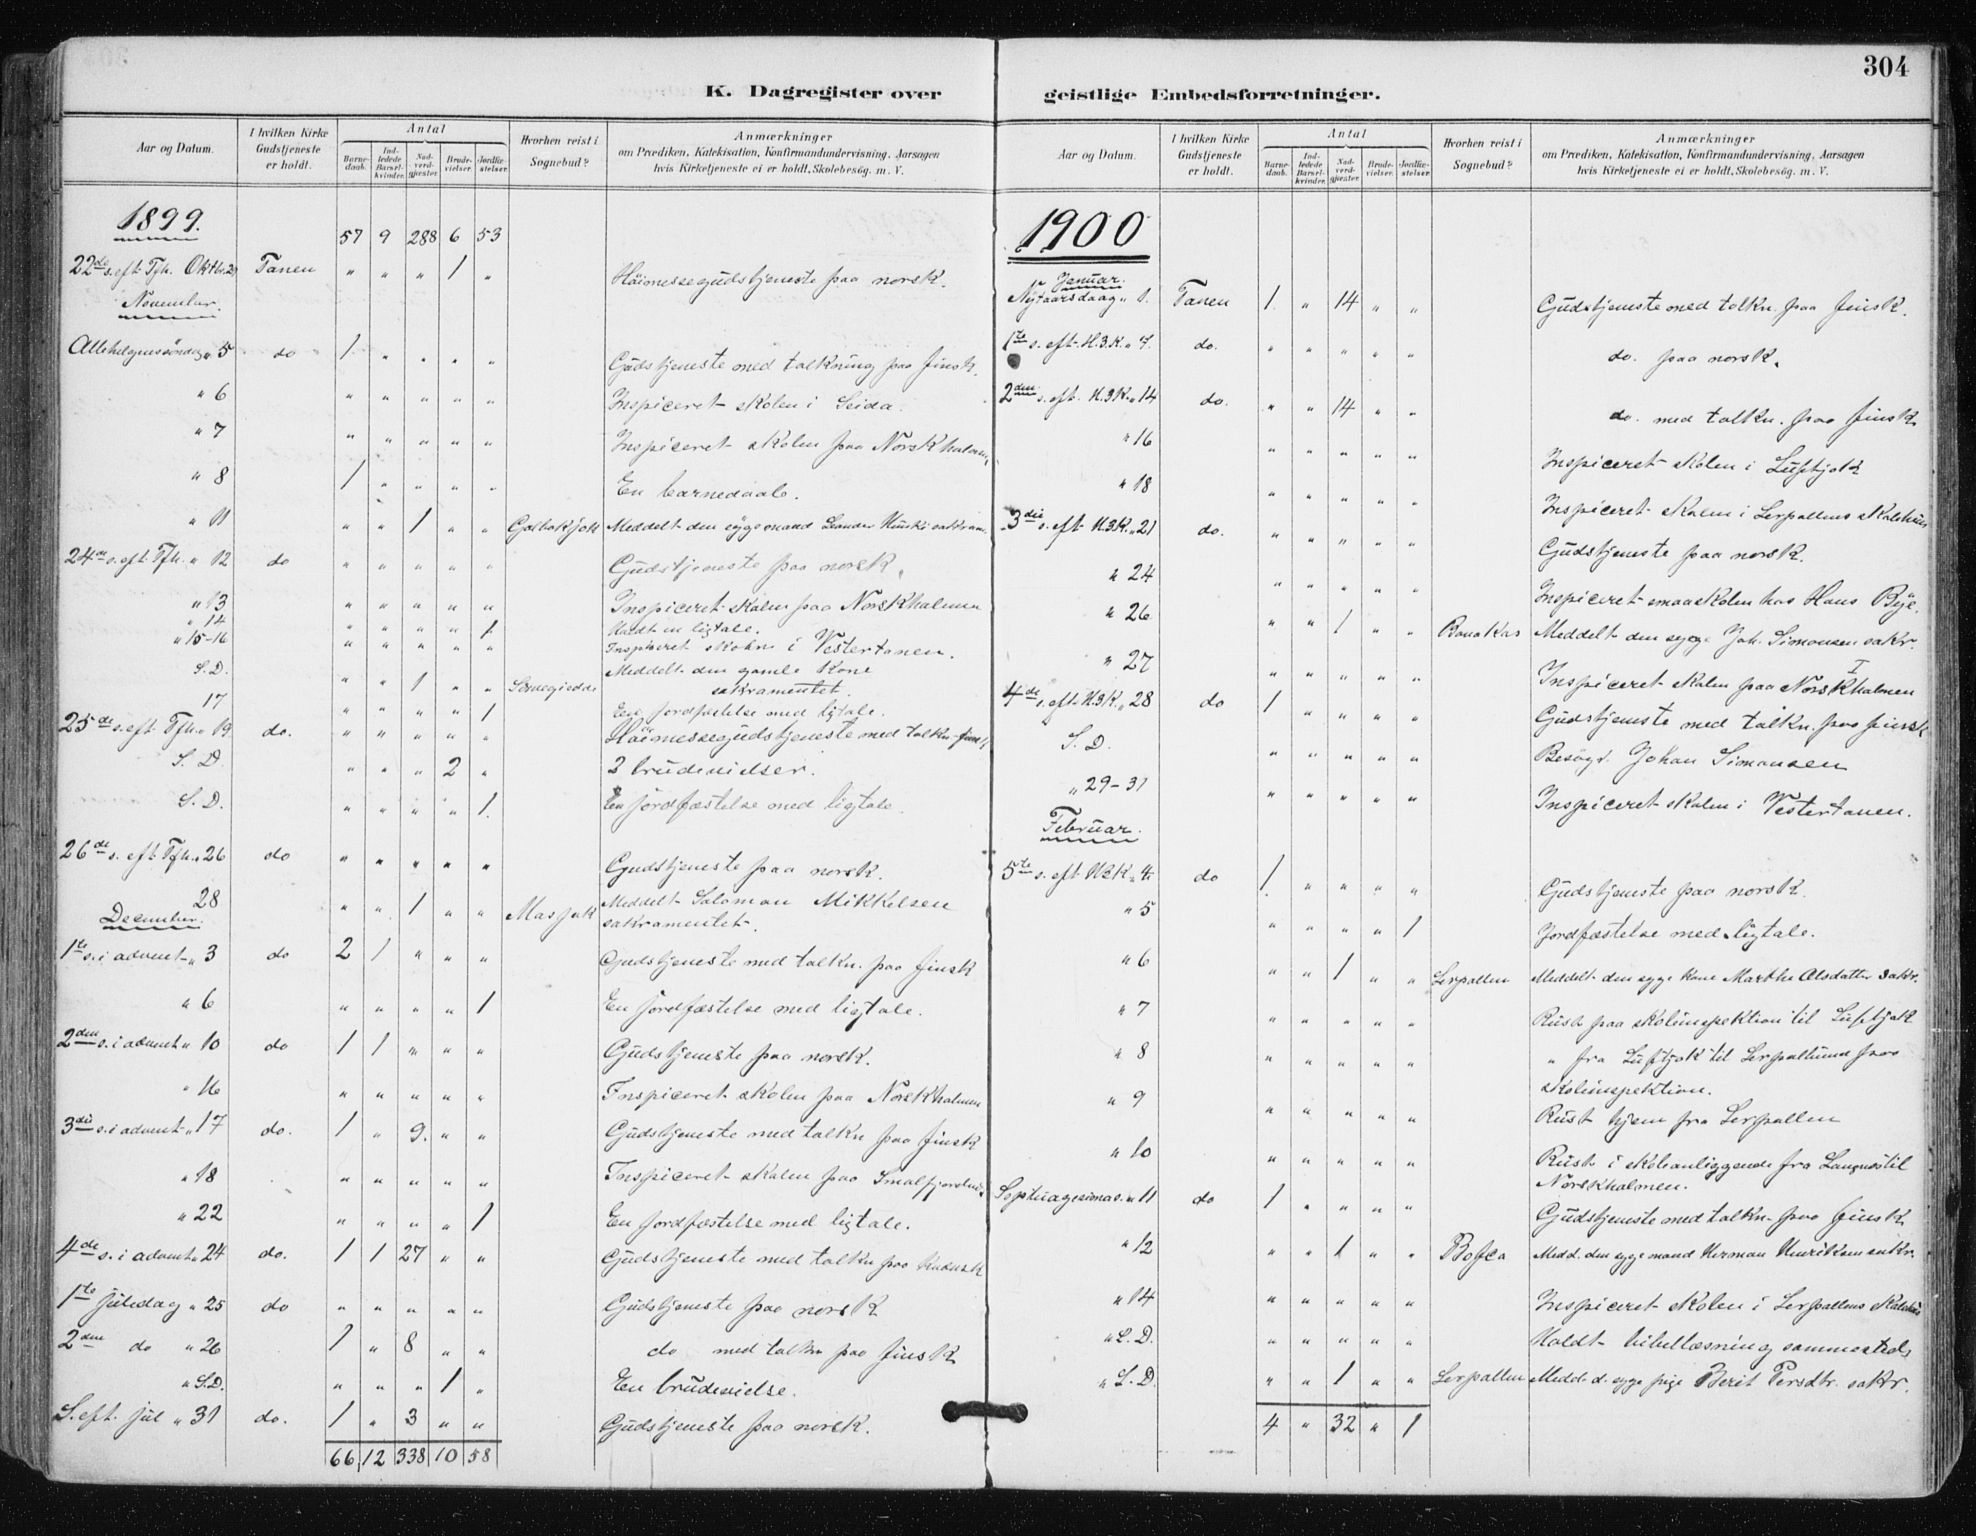 304
K. Dagregister over
Aar og Datum.
I hvilken Kirke Gudstjeneste er holdt.
Antal
Barnedaab.
Indledede Barselkvinder.
Nadverdgjester.
Brudevielser.
Jordfæstelser.
Hvorhen reist i Sognebud?
Anmærkninger
om Prædiken, Katekisation, Konfirmandundervisning, Aarsagen
hvis Kirketjeneste ei er holdt, Skolebesøg. m. V.
1899. 57 9 288 6 53
22de s. eft. Tfh. Oktbr. 29 Tanen " " " 1 " Höimessegudstjeneste paa norsk.
November.
Allehelgenssöndag " 5 do 1 " " " " Gudstjeneste med tolkning paa finsk.
" 6 " " " " " Inspiceret skolen i Seida.
" 7 " " " " " Inspiceret skolen paa Norskholmen
" 8 1 " " " " En barnedaab.
" 11 " " 1 " " Meddelt den syge mand
24de s. eft. Tfh. " 12 do " " " " " Gudstjeneste paa norsk.
" 13 " " " " " Inspiceret skolen paa Norskholmen
" 14 " " " " 1 Holdt en ligtale.
" 15-16 " " " " " Inspiceret skolen i Vestertanen.
S.D. " " 1 " " Meddelt den gamle kone
sakramentet.
17 " " " " 1 En jordfæstelse med ligtale.
25de s. eft. Tfh. " 19 do. " " " " " Höimessegudstjeneste med tolkn. finsk
S. D. " " " 2 " 2 brudevielser.
S. D. " " " " 1 En jordfæstelse med ligtale.
26de s. eft. Tfh. " 26 do " " " " " Gudstjeneste paa norsk.
28 " " 1 " " Masjok Meddelt Salomon Mikkelsen
December.
sakramentet.
1te s. i advent " 3 do 2 1 " " " Gudstjeneste med tolkn. paa finsk
" 6 " " " " 1 En jordfæstelse med ligtale.
2den s. i advent " 10 do 1 1 " " " Gudstjeneste paa norsk.
" 16 " " " " " Inspiceret skolen paa Norskholmen
3die s. i advent " 17 do. 1 " 9. " " Gudstjeneste med tolkn paa finsk
" 18 " " " " " Inspiceret skolen paa Smalfjorden
" 22 " " " " 1 En jordfæstelse med ligtale.
4de s. i advent " 24 do. 1 1 27 " " Gudstjeneste med tolkn paa
1te Juledag " 25 do " " " " " Gudstjeneste paa norsk
2den do " 26 1 " 8 " " do med tolkn paa finsk
" S.D. " " " 1 " En brudevielse.
S. eft. jul " 31 do. 1 " 3 " " Gudstjeneste paa norsk.
66 12 338 10 58
geistlige Embedsforretninger.
Aar og Datum.
I hvilken Kirke Gudstjeneste er holdt.
Antal
Barnedaab.
Indledede Barselkvinder.
Nadverdgjester.
Brudevielser.
Jordfæstelser.
Hvorhen reist i Sognebud?
Anmærkninger
om Prædiken, Katekisation, Konfirmandundervisning, Aarsagen
hvis Kirketjeneste ei er holdt, Skolebesøg. m. V.
1900
Januar.
Nytaarsdaag " 1. Tanen 1 " 14 " " Gudstjeneste med tolkn. paa finsk.
1te s. eft. H.3.K. " 7. do. " " " " " do. paa norsk.
2den s. eft. H.3K. " 14 do. " " 14 " " do. med tolkn. paa finsk
" 16 " " " " " Inspiceret skolen i Luftjok
" 18 " " " " " Inspiceret skolen i Lerpollens skolehus
3die s. eft. H.3K. " 21 do. " " " " " Gudstjeneste paa norsk.
" 24 " " " " " Inspiceret smaaskolen hos Hans Bye.
" 26 " " 1 " " Bonakas Meddelt den syge Joh. Simonsen sakr.
" 27 " " " " " Inspiceret skolen paa Norskholmen
4de s. eft. H.3K. " 28 do 1 " " " " Gudstjeneste med tolkn. paa finsk
S. D. " " " " " Besögt Johan Simonsen
" 29-31 " " " " " Inspiceret skolen i Vestertanen.
Februar.
5te s. eft. H3K. " 4 do 1 " " " " Gudstjeneste paa norsk.
" 5 " " " " 1 Jordfæstelse med ligtale.
" 6 " " 1 " " Lerpollen Meddelt den syge kone Marthe Olsdatter sakr.
" 7 " " " " " Reist paa skoleinspektion til Luftjok
" 8 " " " " " " fra Luftjok til Lerpollen paa
skoleinspektion.
" 9 " " " " " Reist hjem fra Lerpollen
" 10 " " " " " Reist i skoleanliggende fra Langnes til
Norskholmen.
Septuagesima s. " 11 do 1 " " " " Gudstjeneste med tolkn. paa finsk
" 12 " " 1 " " Medd. den syge mand Herman Henriksen sakr.
" 14 " " " " " Inspiceret skolen i Lerpollens skolehus
" S. D. " " " " " Holdt bibellæsning sammesteds
" S. D. " " 1 " " Lerpollen Medd. d. syge pige Berit Persdtr. sakr.
4 " 32 " 1